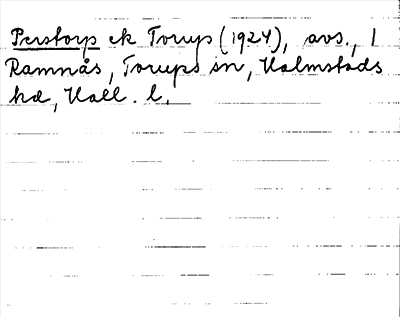 Perstorp ek Torup (1924), avs., 1
Ramnås, Torups sn, Halmstads
hd, Hall. l.